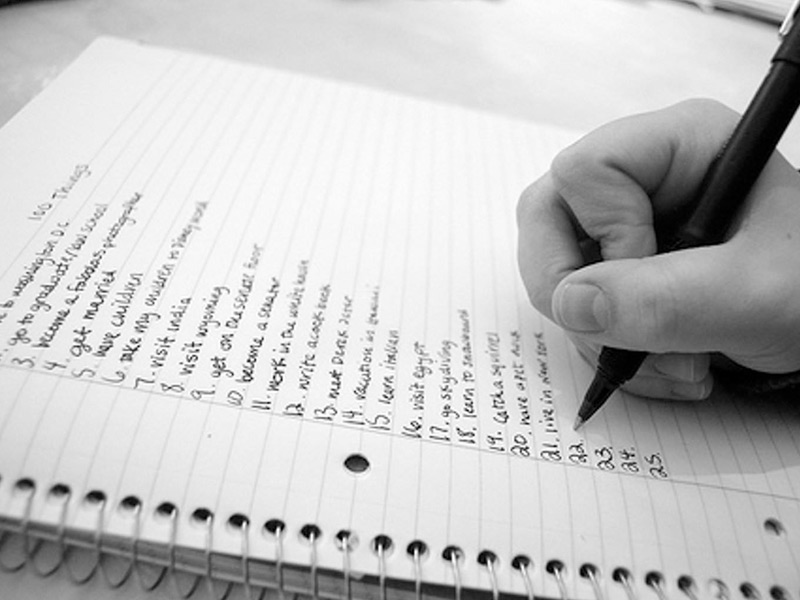 100 Things
to washington D.C
go to graduate/law school
3. become a fabulous photographer
4. get married
5. have children
6. take my children to disney world
7. visit india
8. visit wyoming
9. get on the senate floor
10. become a senator
11. work in the white house
12. write a cook book
13. meet Derek Jeter
14. vacation in
15. learn italian
16. visit egypt
17. go skydiving
18. learn to snowboard
19. catch a squirrel
20. have a pet
21. live in new york
22.
23.
24.
25.